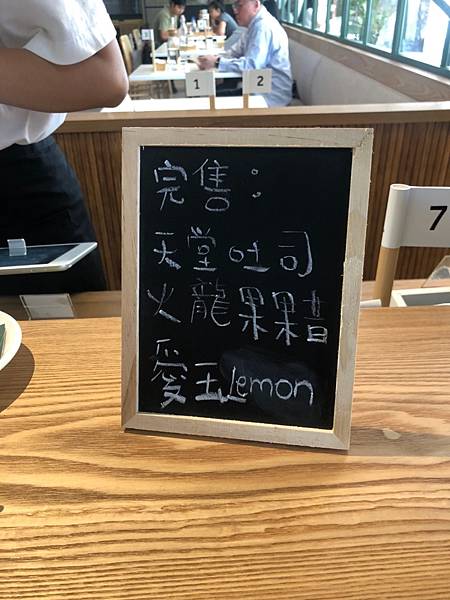 1
2
7
完售：
天堂吐司
火龍果果昔
愛玉lemon